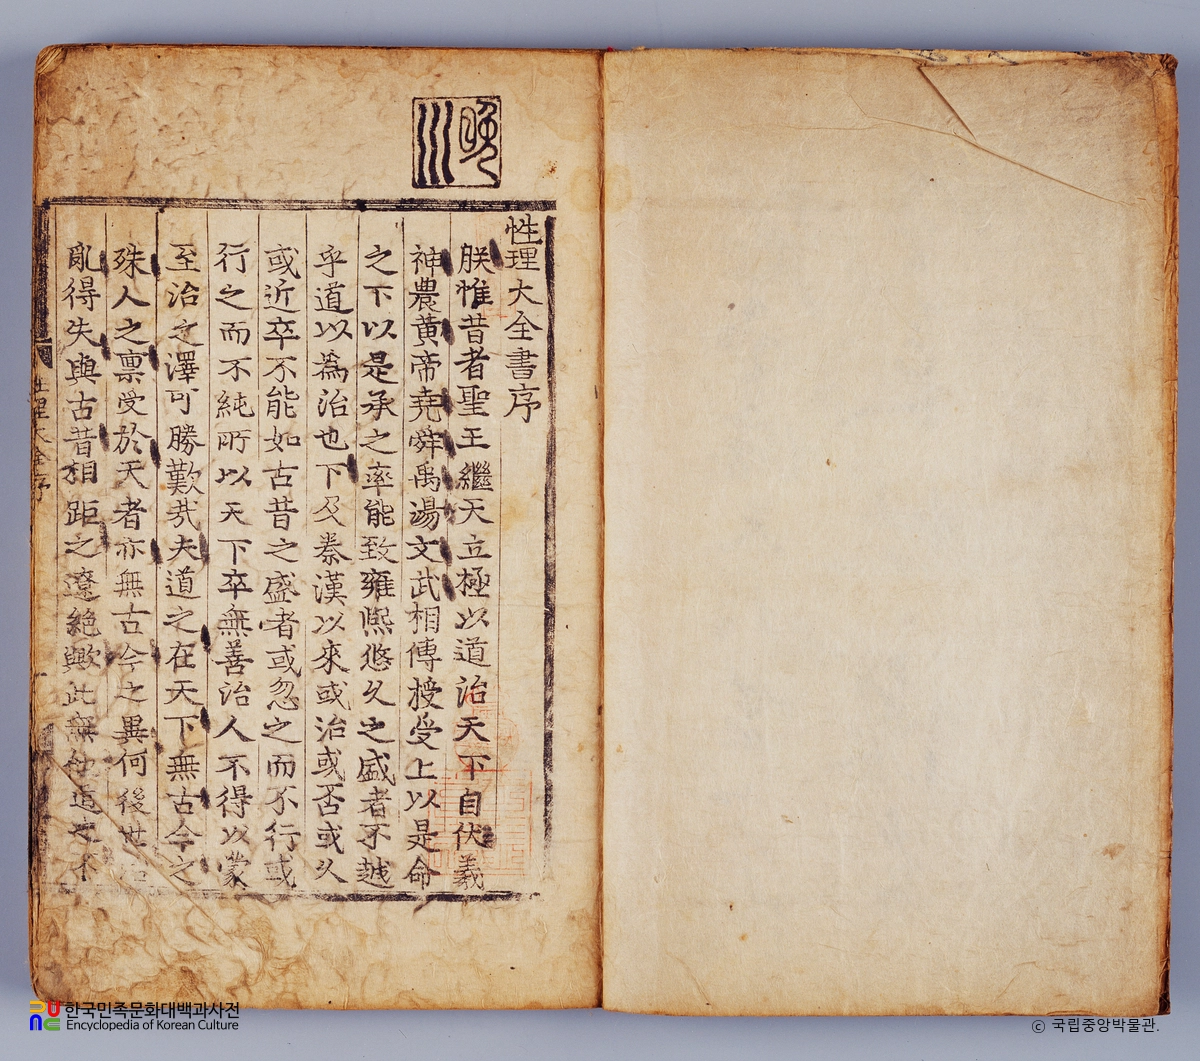 性理大全書序
朕惟昔者聖王繼天立極以道治天下自伏羲
神農黃帝堯舜禹湯文武相傳授受上以是命
之下以是承之率能致雍熙悠久之盛者不越
乎道以爲治也下及秦漢以來或治或否或久
或近卒不能如古昔之盛者或忽之而不行或
行之而不純所以天下卒無善治人不得以蒙
至治之澤可勝歎哉夫道之在天下無古今之
殊人之稟受於天者亦無古今之異何後世治
亂得失與古昔相距之遼絶歟此無他道之不
性理大全序
晩川
한국민족문화대백과사전
Encyclopedia of Korean Culture
ⓒ 국립중앙박물관.